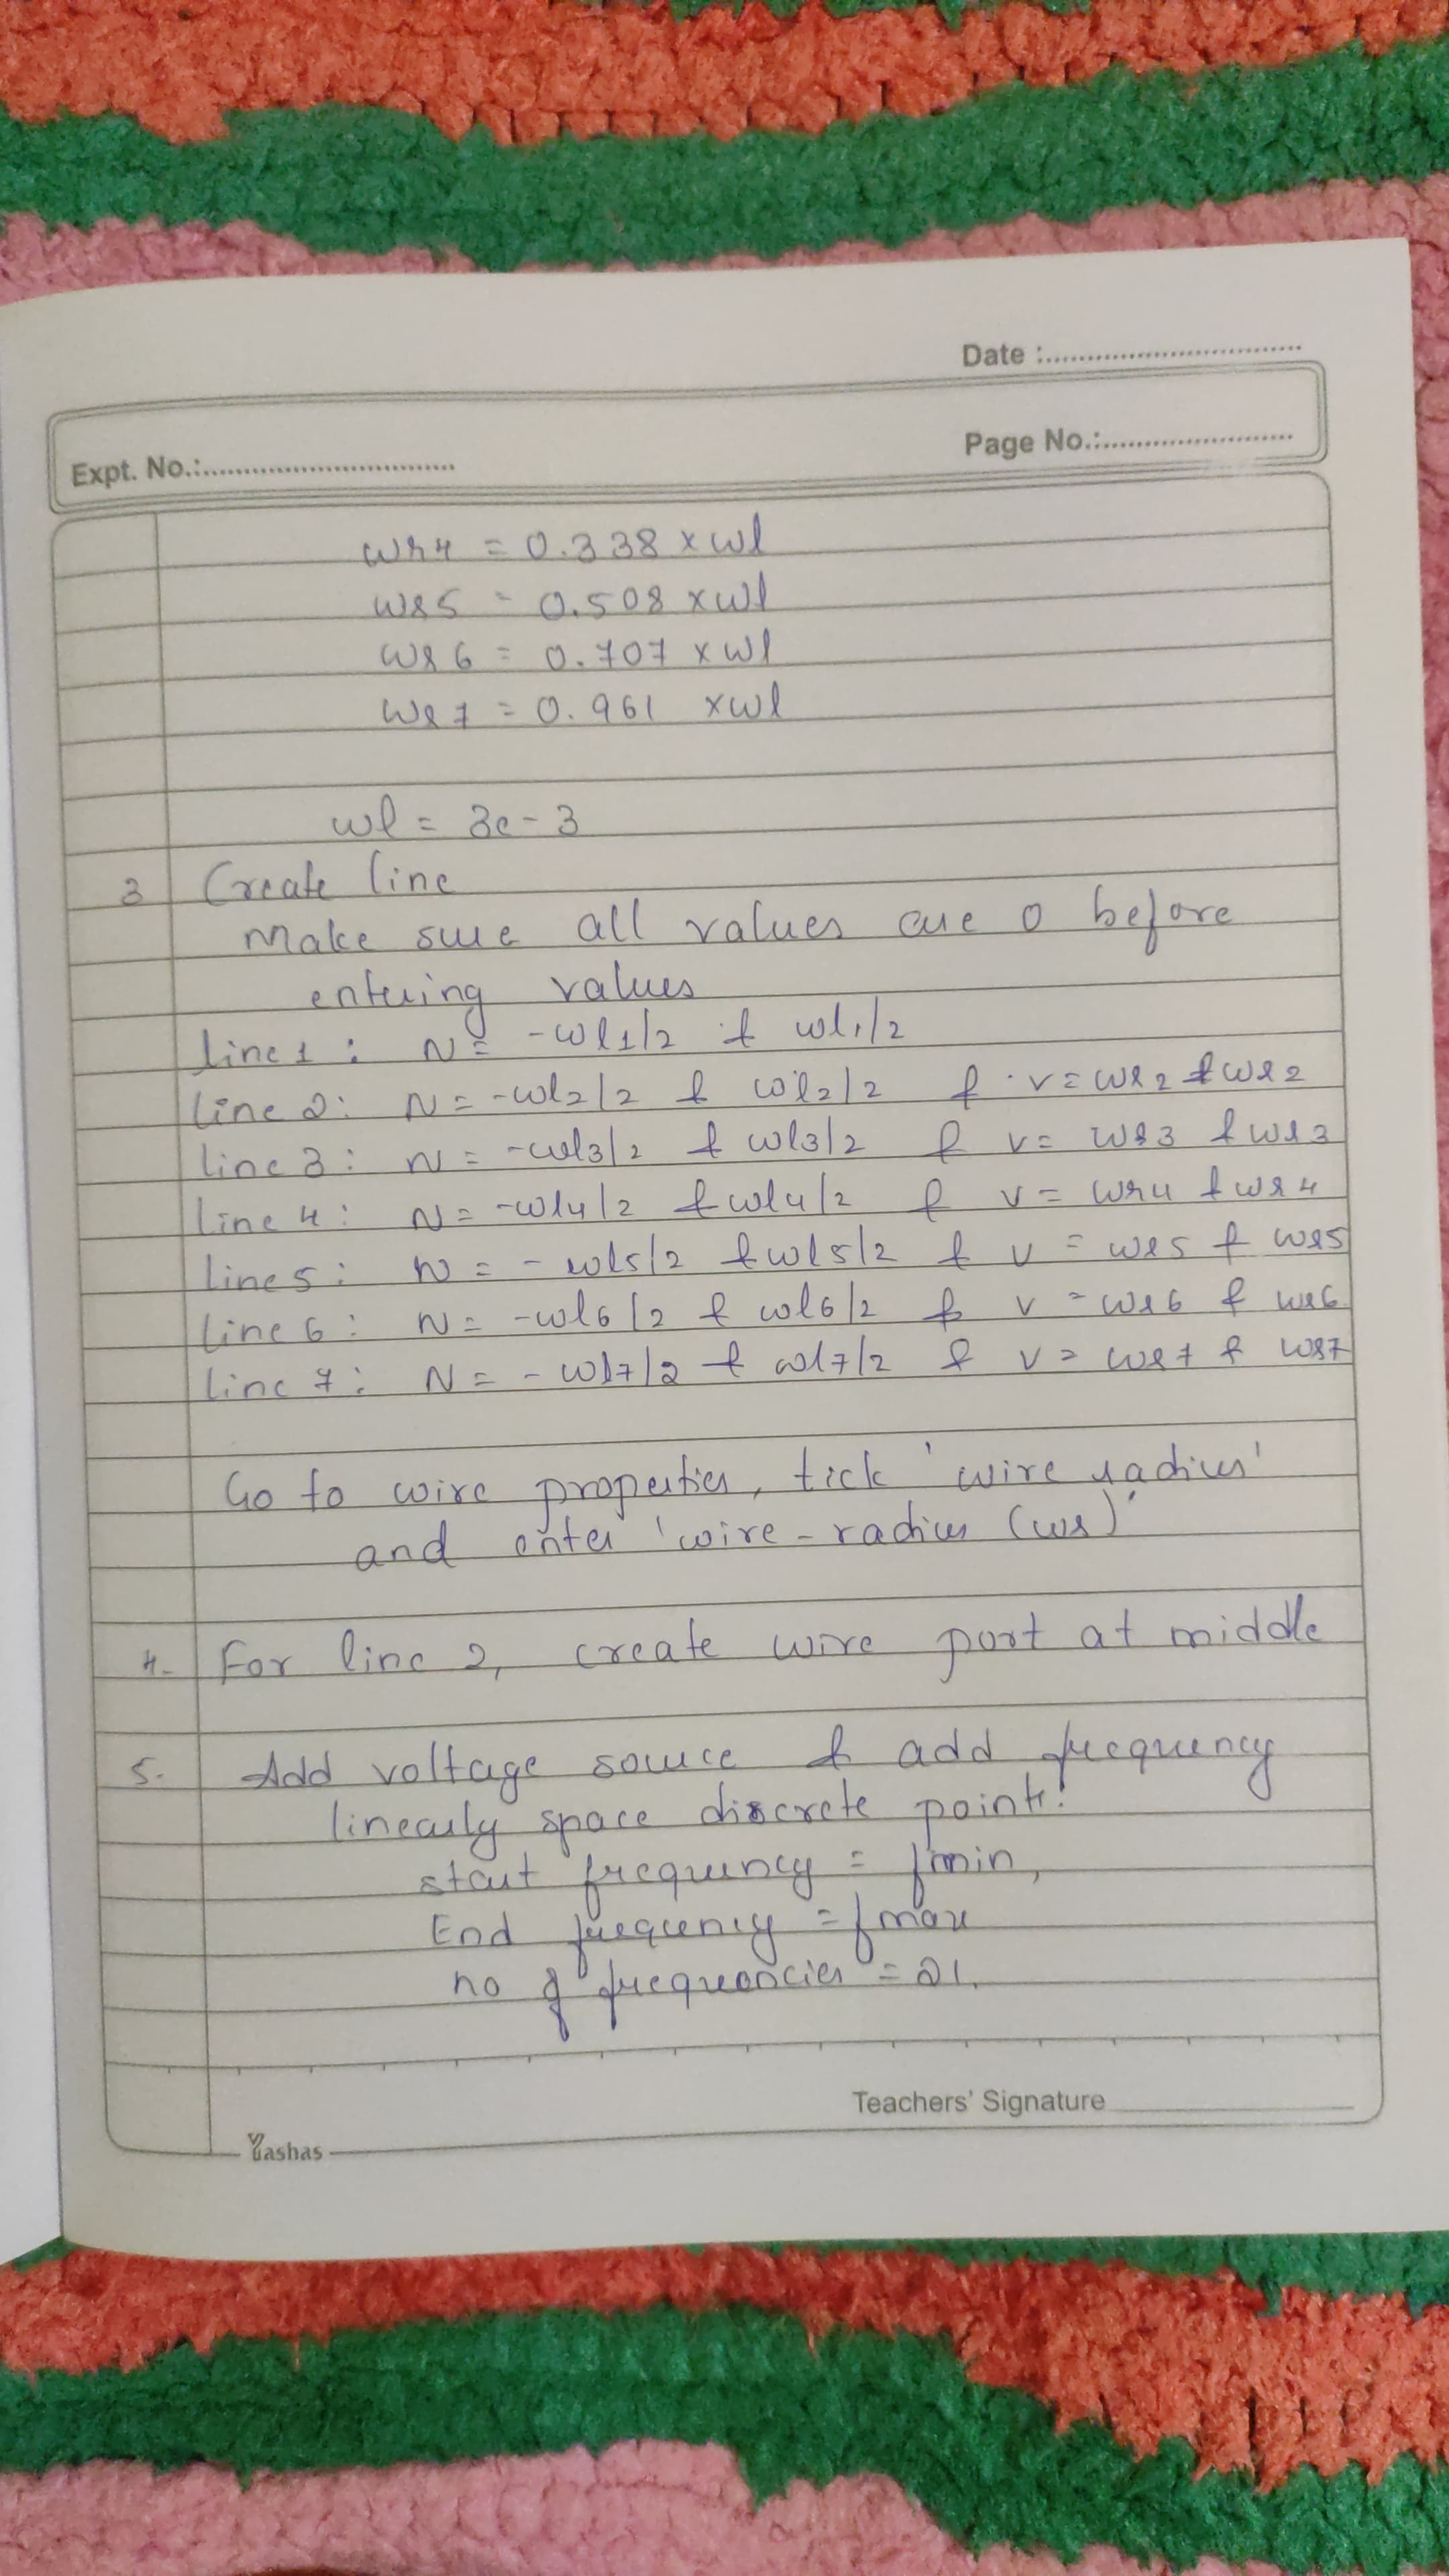 Date :
Expt. No.:
Page No.:
wr4 = 0.338 x wl
wr5 = 0.508 x wl
wr6 = 0.707 x wl
wr7 = 0.961 x wl
wl = 3e-3
3 Create line
Make sure all values are 0 before
entering values
line 1 : N = -wl1/2 & wl1/2
line 2: N = -wl2/2 & wl2/2 & v = wr2 & wr2
line 3: N = -wl3/2 & wl3/2 & v = wr3 & wr3
line 4: N = -wl4/2 & wl4/2 & v = wr4 & wr4
line 5: N = -wl5/2 & wl5/2 & v = wr5 & wr5
line 6: N = -wl6/2 & wl6/2 & v = wr6 & wr6
line 7: N = -wl7/2 & wl7/2 & v = wr7 & wr7
Go to wire properties, tick 'wire radius'
and enter 'wire-radius (wr)'
4- For line 2, create wire port at middle
5- Add voltage source & add frequency
linearly space discrete points:
start frequency = fmin,
End frequency = fmax
no of frequencies = 21.
Teachers' Signature
Yashas